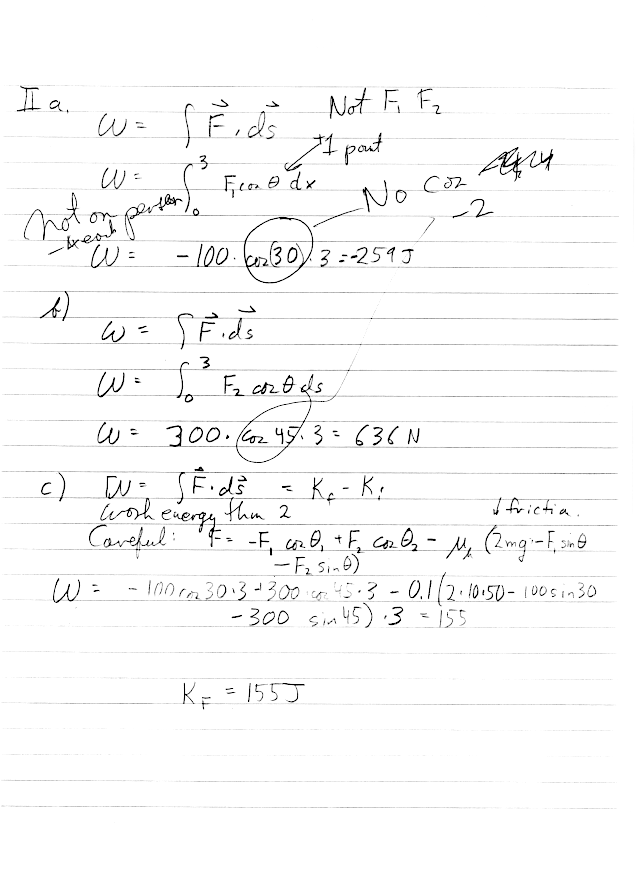 II a.
Not F₁ F₂
W = ∫ F⃗ . ds⃗
+1 point
W = ∫₀³ F₁ cos θ dx
No cos
-2
not on person
W = -100 · cos(30) · 3 = -259 J
b)
W = ∫ F⃗ . ds⃗
W = ∫₀³ F₂ cos θ ds
W = 300 · cos 45 · 3 = 636 N
c) W = ∫ F⃗ . ds⃗ = K_f - K_i
Work energy thm 2
↓ friction.
Careful: F = -F₁ cos θ₁ + F₂ cos θ₂ - μ_k (2mg - F₁ sin θ
- F₂ sin θ)
W = -100 cos 30 · 3 + 300 cos 45 · 3 - 0.1 (2 · 10 · 50 - 100 sin 30
- 300 sin 45) · 3 = 155
K_F = 155 J